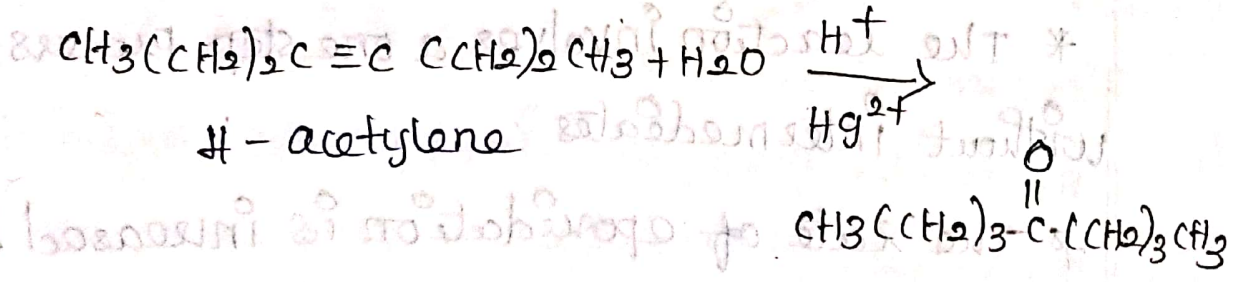 CH3(CH2)2C ≡C (CH2)2 CH3 + H2O H+
Hg2+
H - acetylene
O
||
CH3(CH2)3-C-(CH2)3CH3